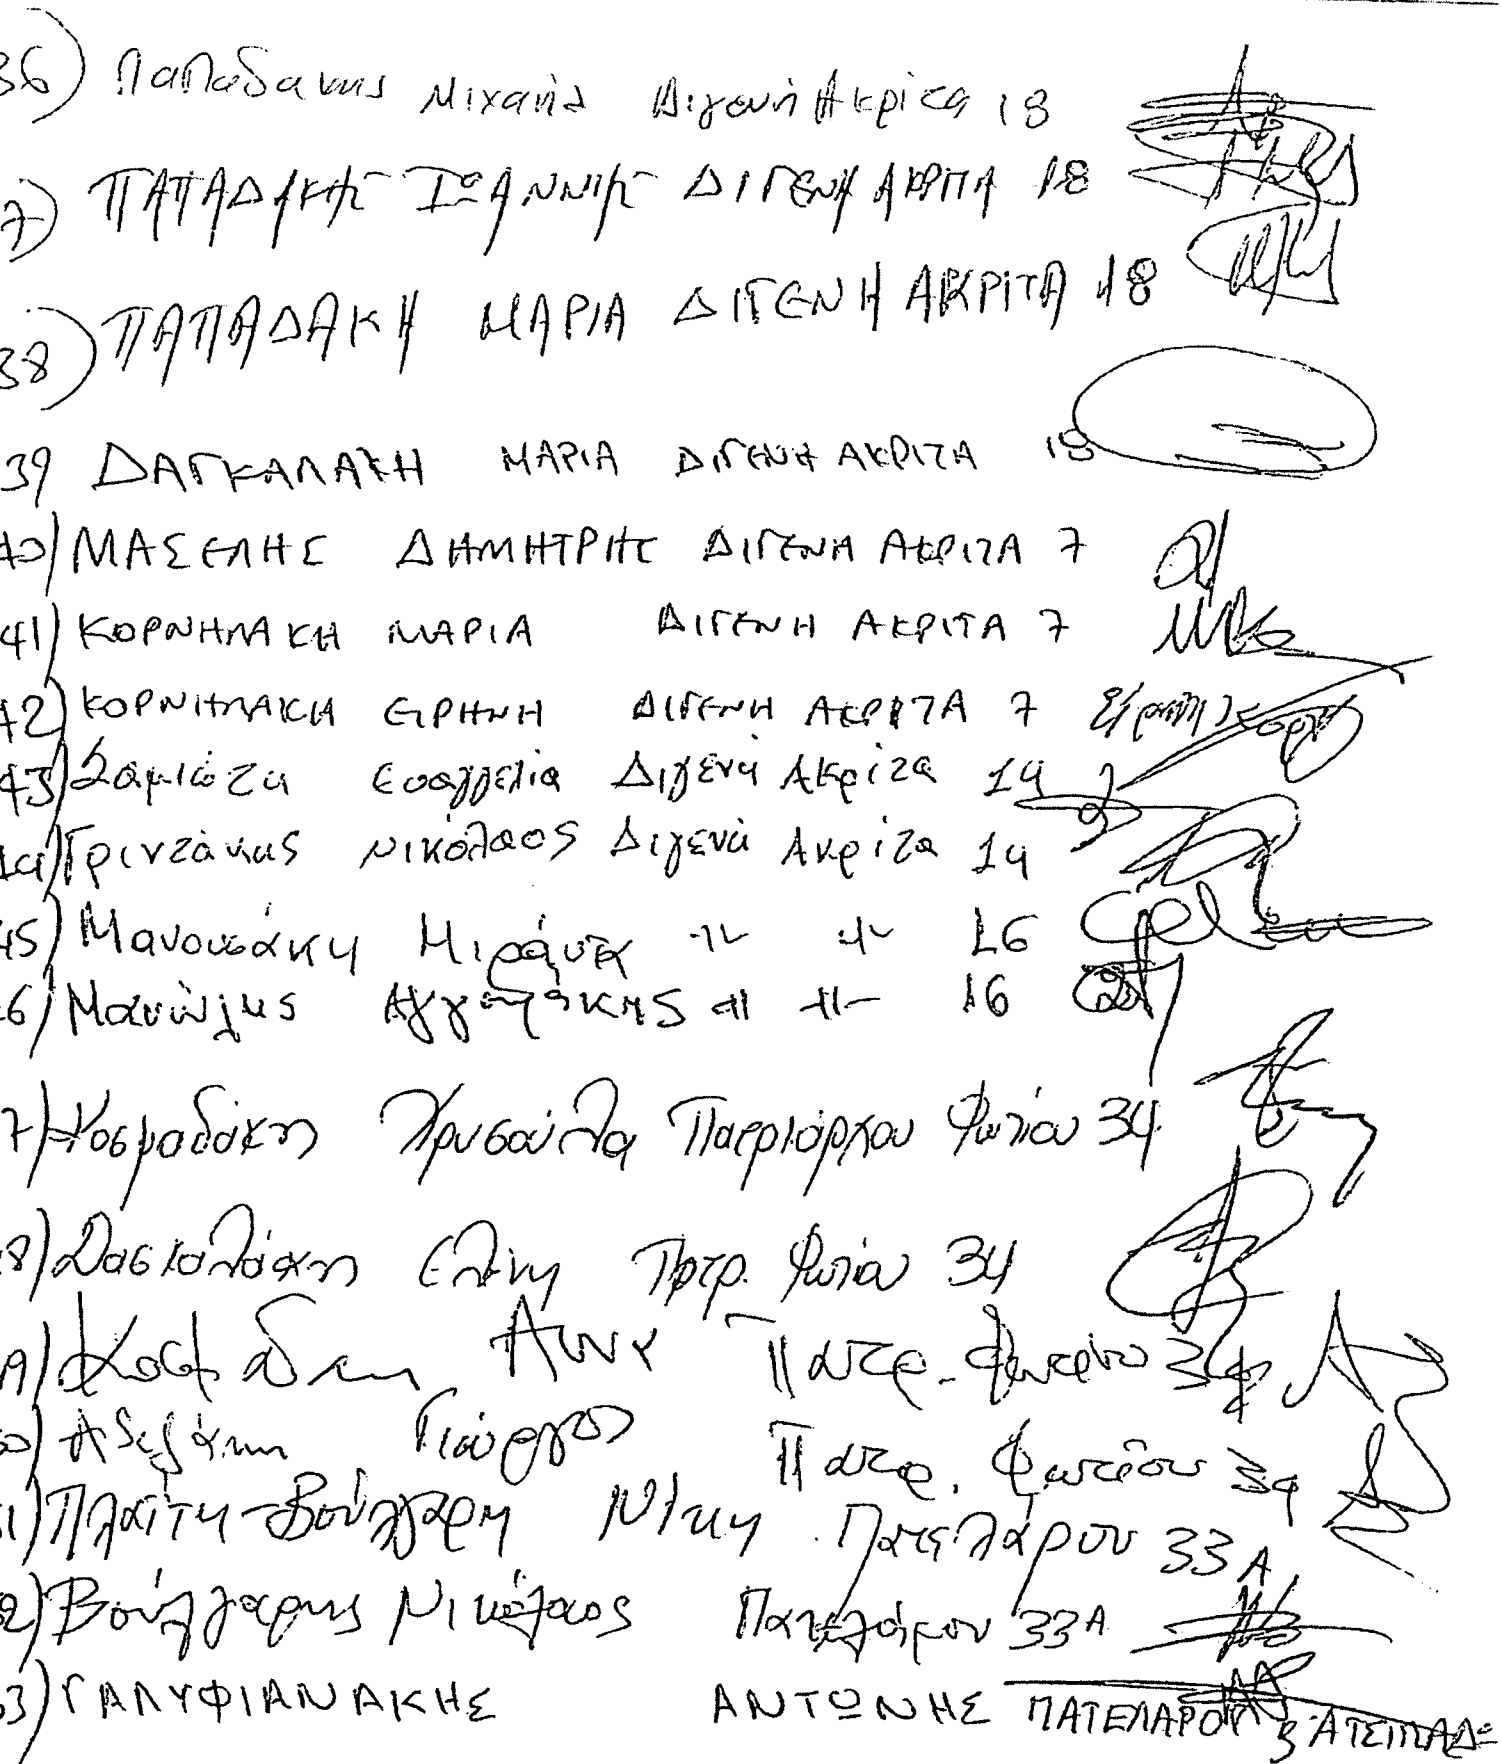 36) Παπαδακης Μιχαήλ Διγενή Ακρίτα 18
7) ΠΑΠΑΔΑΚΗΣ ΙΩΑΝΝΗΣ ΔΙΓΕΝΗ ΑΚΡΙΤΑ 18
38) ΠΑΠΑΔΑΚΗ ΜΑΡΙΑ ΔΙΓΕΝΗ ΑΚΡΙΤΑ 18
39 ΔΑΓΚΑΛΑΚΗ ΜΑΡΙΑ ΔΙΓΕΝΗ ΑΚΡΙΤΑ 18
40) ΜΑΣΕΛΗΣ ΔΗΜΗΤΡΗΣ ΔΙΓΕΝΗ ΑΚΡΙΤΑ 7
41) ΚΟΡΝΗΛΑΚΗ ΜΑΡΙΑ ΔΙΓΕΝΗ ΑΚΡΙΤΑ 7
42) ΚΟΡΝΗΛΑΚΗ ΕΙΡΗΝΗ ΔΙΓΕΝΗ ΑΚΡΙΤΑ 7
43) Σαμιώτη Ευαγγελία Διγενή Ακρίτα 14
44) Γριντάκης Νικόλαος Διγενή Ακρίτα 14
45) Μανουσάκη Μιράντα -//- -//- 16
6) Μανώλης -//- -//- 16
7) Κοσμαδάκη Χρυσούλα Πατριάρχου Φωτίου 34
8) Δασκαλάκη Ελένη Πατρ. Φωτίου 34
9) Κοσμαδάκη Άννα Πατρ. Φωτίου 34
0) Γιώργος Πατρ. Φωτίου 34
1) Πλαΐτη-Βούλγαρη Νίκη Πατελάρου 33Α
2) Βούλγαρης Νικόλαος Πατελάρου 33Α
3) ΓΑΛΥΦΙΑΝΑΚΗΣ ΑΝΤΩΝΗΣ ΠΑΤΕΛΑΡΟΥ 3